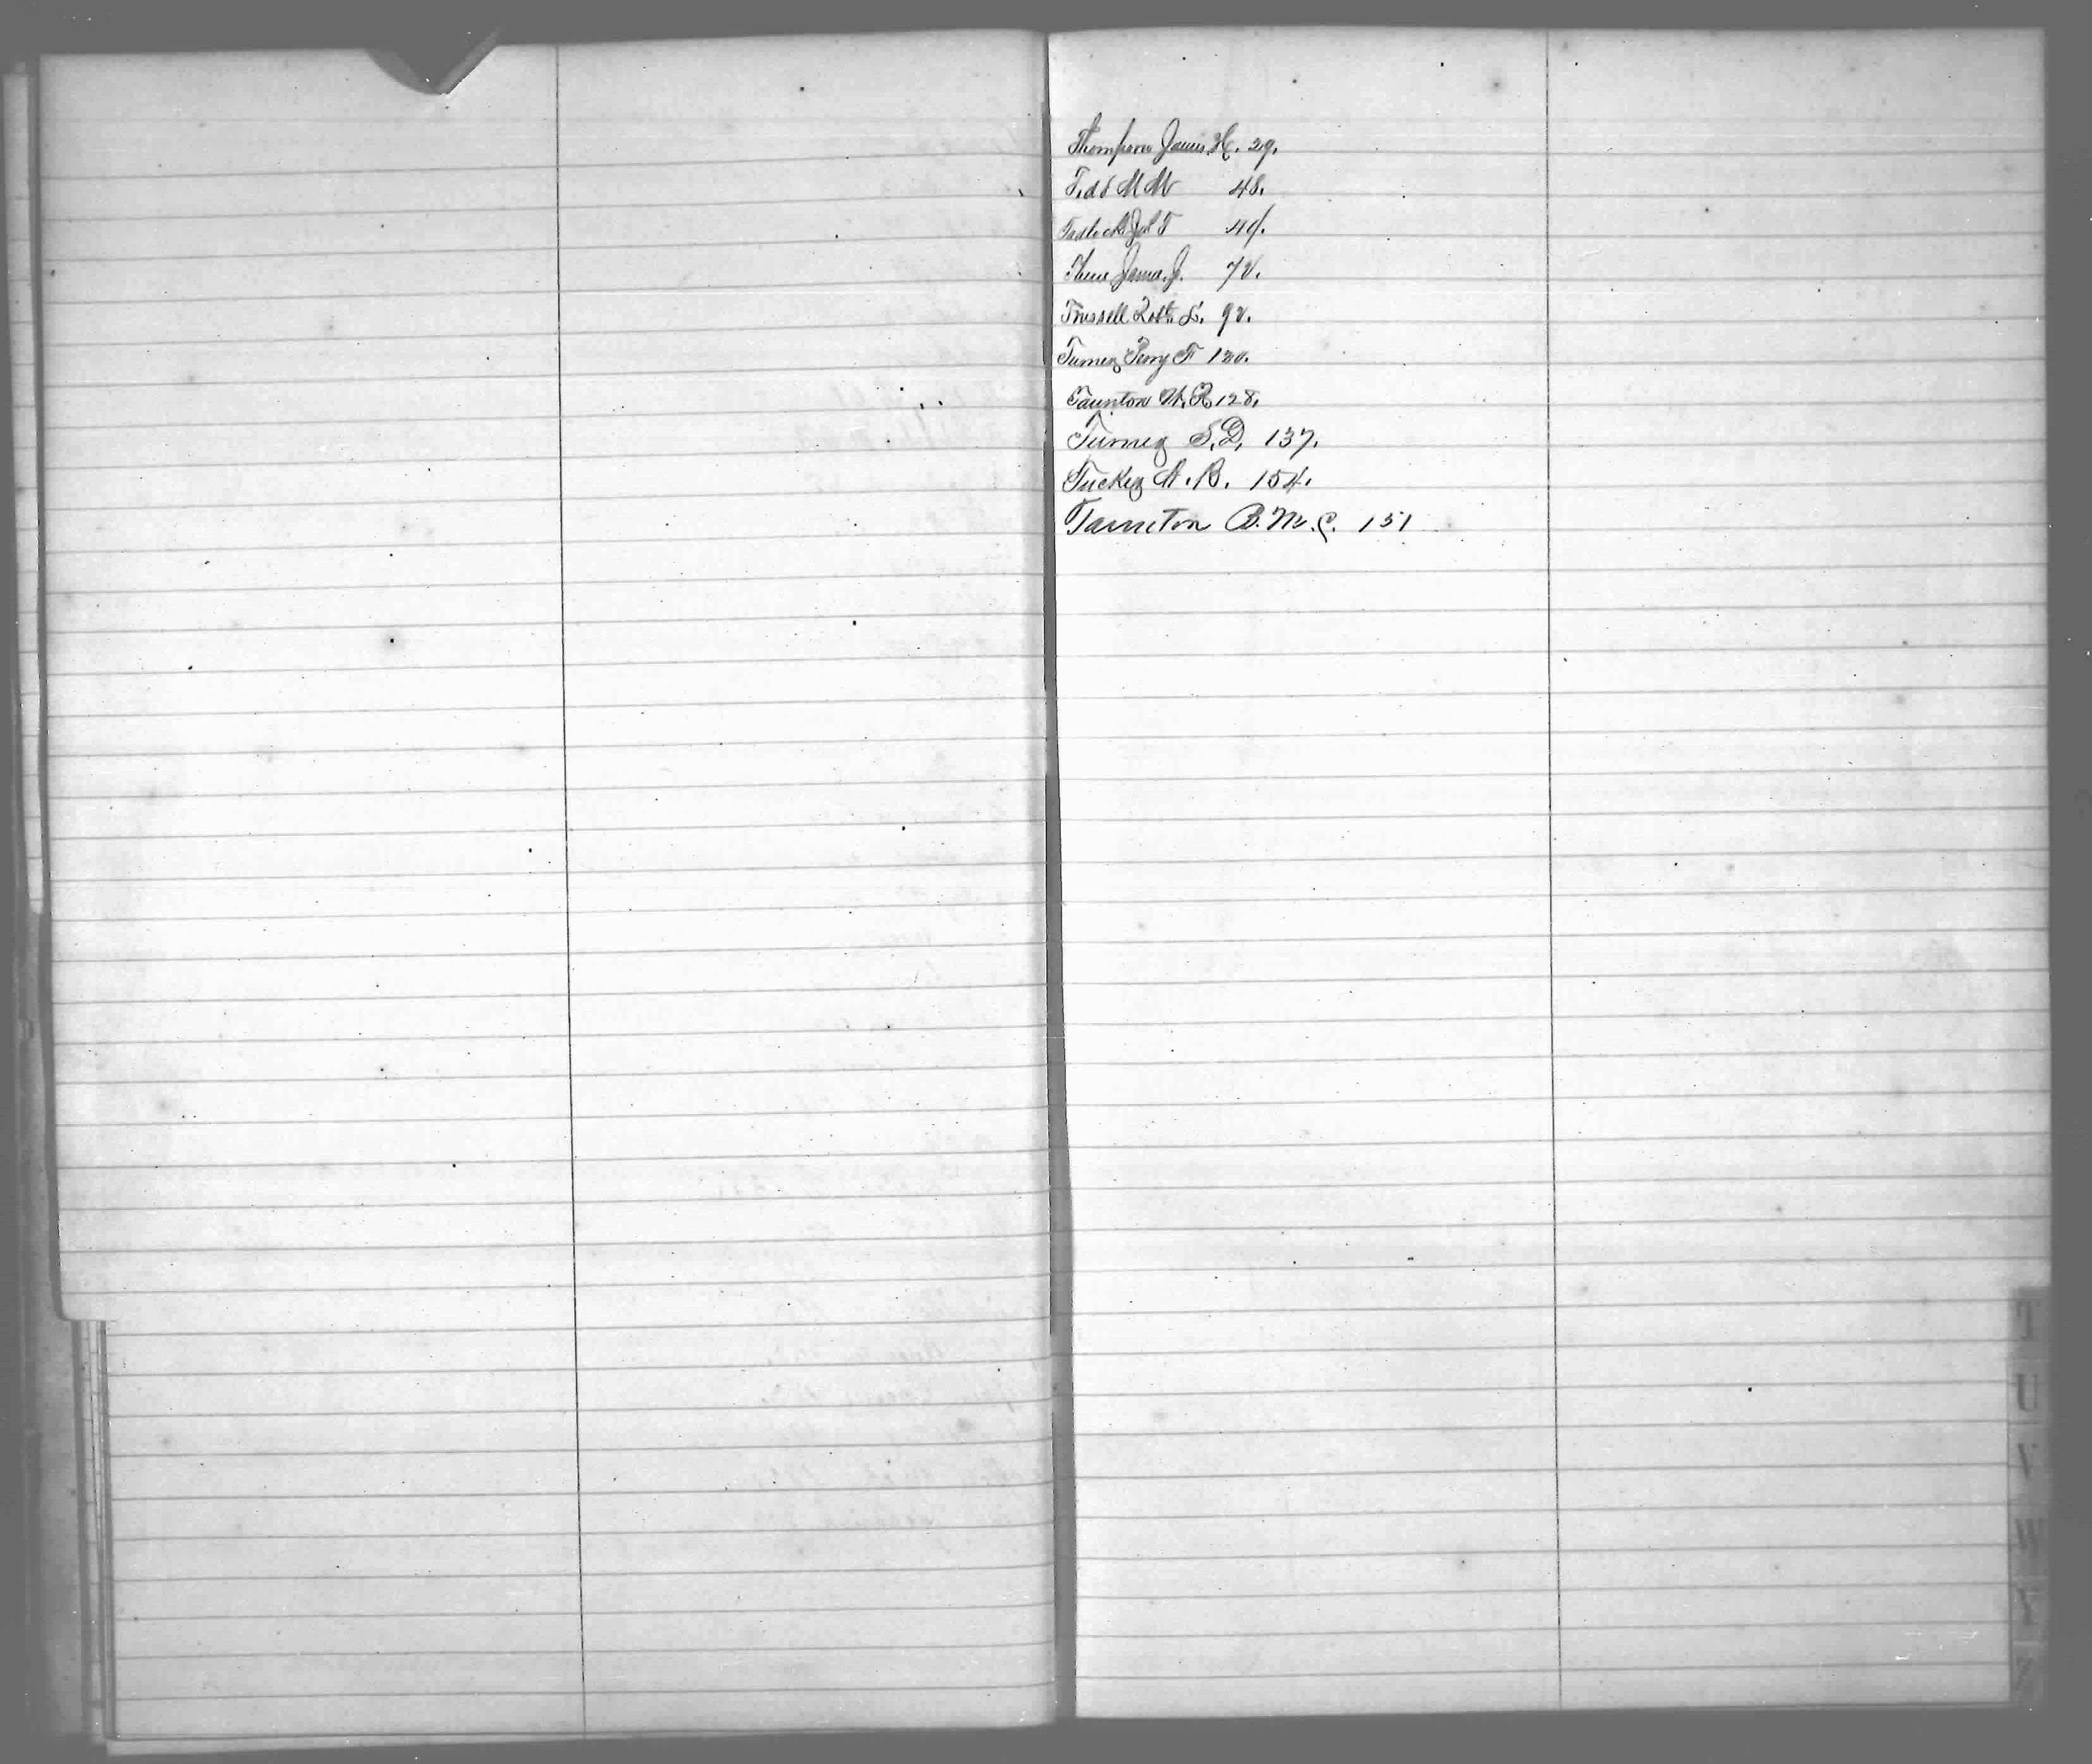 Thompson James H. 29.
Todd M M 48.
Tadlock Jol T 49.
James J. 72.
Trussell Robt. L. 92.
Turner Perry F 120.
Taunton W. R 128.
Turner S. D. 137.
Tucker A. B. 154.
Taunton B. M. C. 151
T
U
V
W
Y
Z